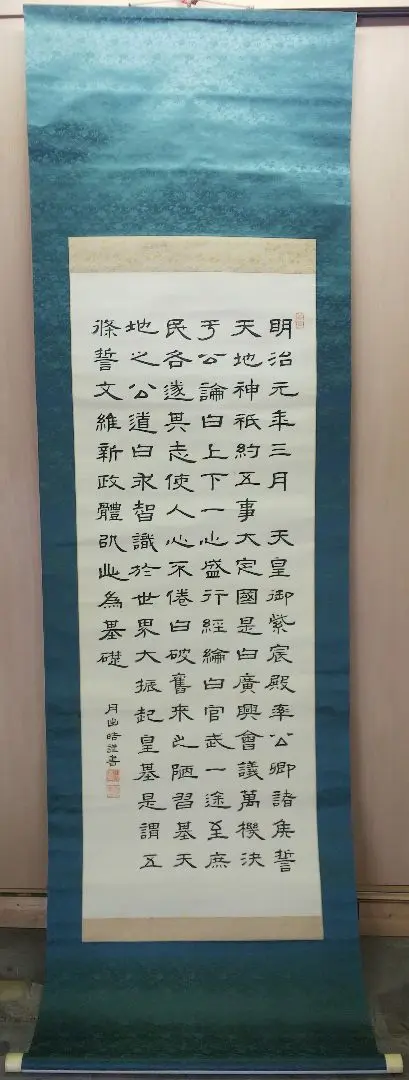 明治元年三月　天皇御紫宸殿率公卿諸侯誓
天地神祇約五事大定國是曰廣興會議萬機決
于公論曰上下一心盛行經綸曰官武一途至庶
民各遂其志使人心不倦曰破舊来之陋習基天
地之公道曰求智識於世界大振起皇基是謂五
條誓文維新政體以此為基礎
月
書